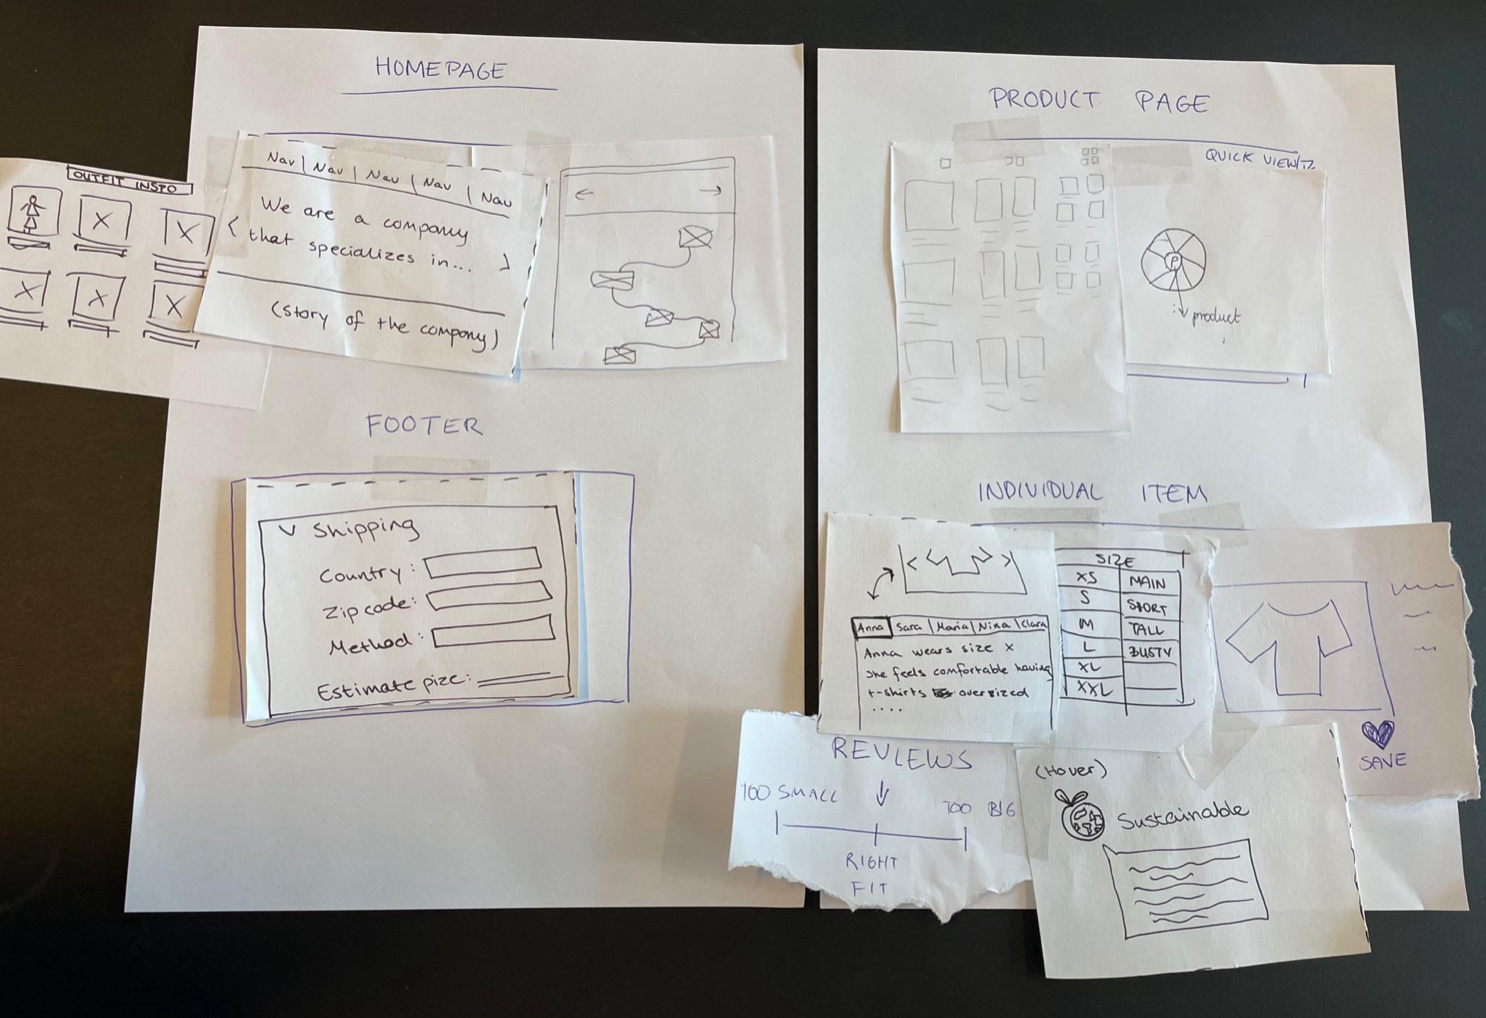 HOMEPAGE
OUTFIT INSPO
Nav | Nav | Nav | Nav | Nav
We are a company
that specializes in...
(story of the company)
FOOTER
Shipping
Country:
Zip code:
Method:
Estimate pize:
PRODUCT PAGE
QUICK VIEW
P
product
INDIVIDUAL ITEM
Anna | Sara | Maria | Nina | Clara
Anna wears size x
She feels comfortable having
t-shirts oversized
....
SIZE
XS
S
M
L
XL
XXL
MAIN
SHORT
TALL
BUSTY
SAVE
REVIEWS
TOO SMALL
TOO BIG
RIGHT
FIT
(Hover)
Sustainable